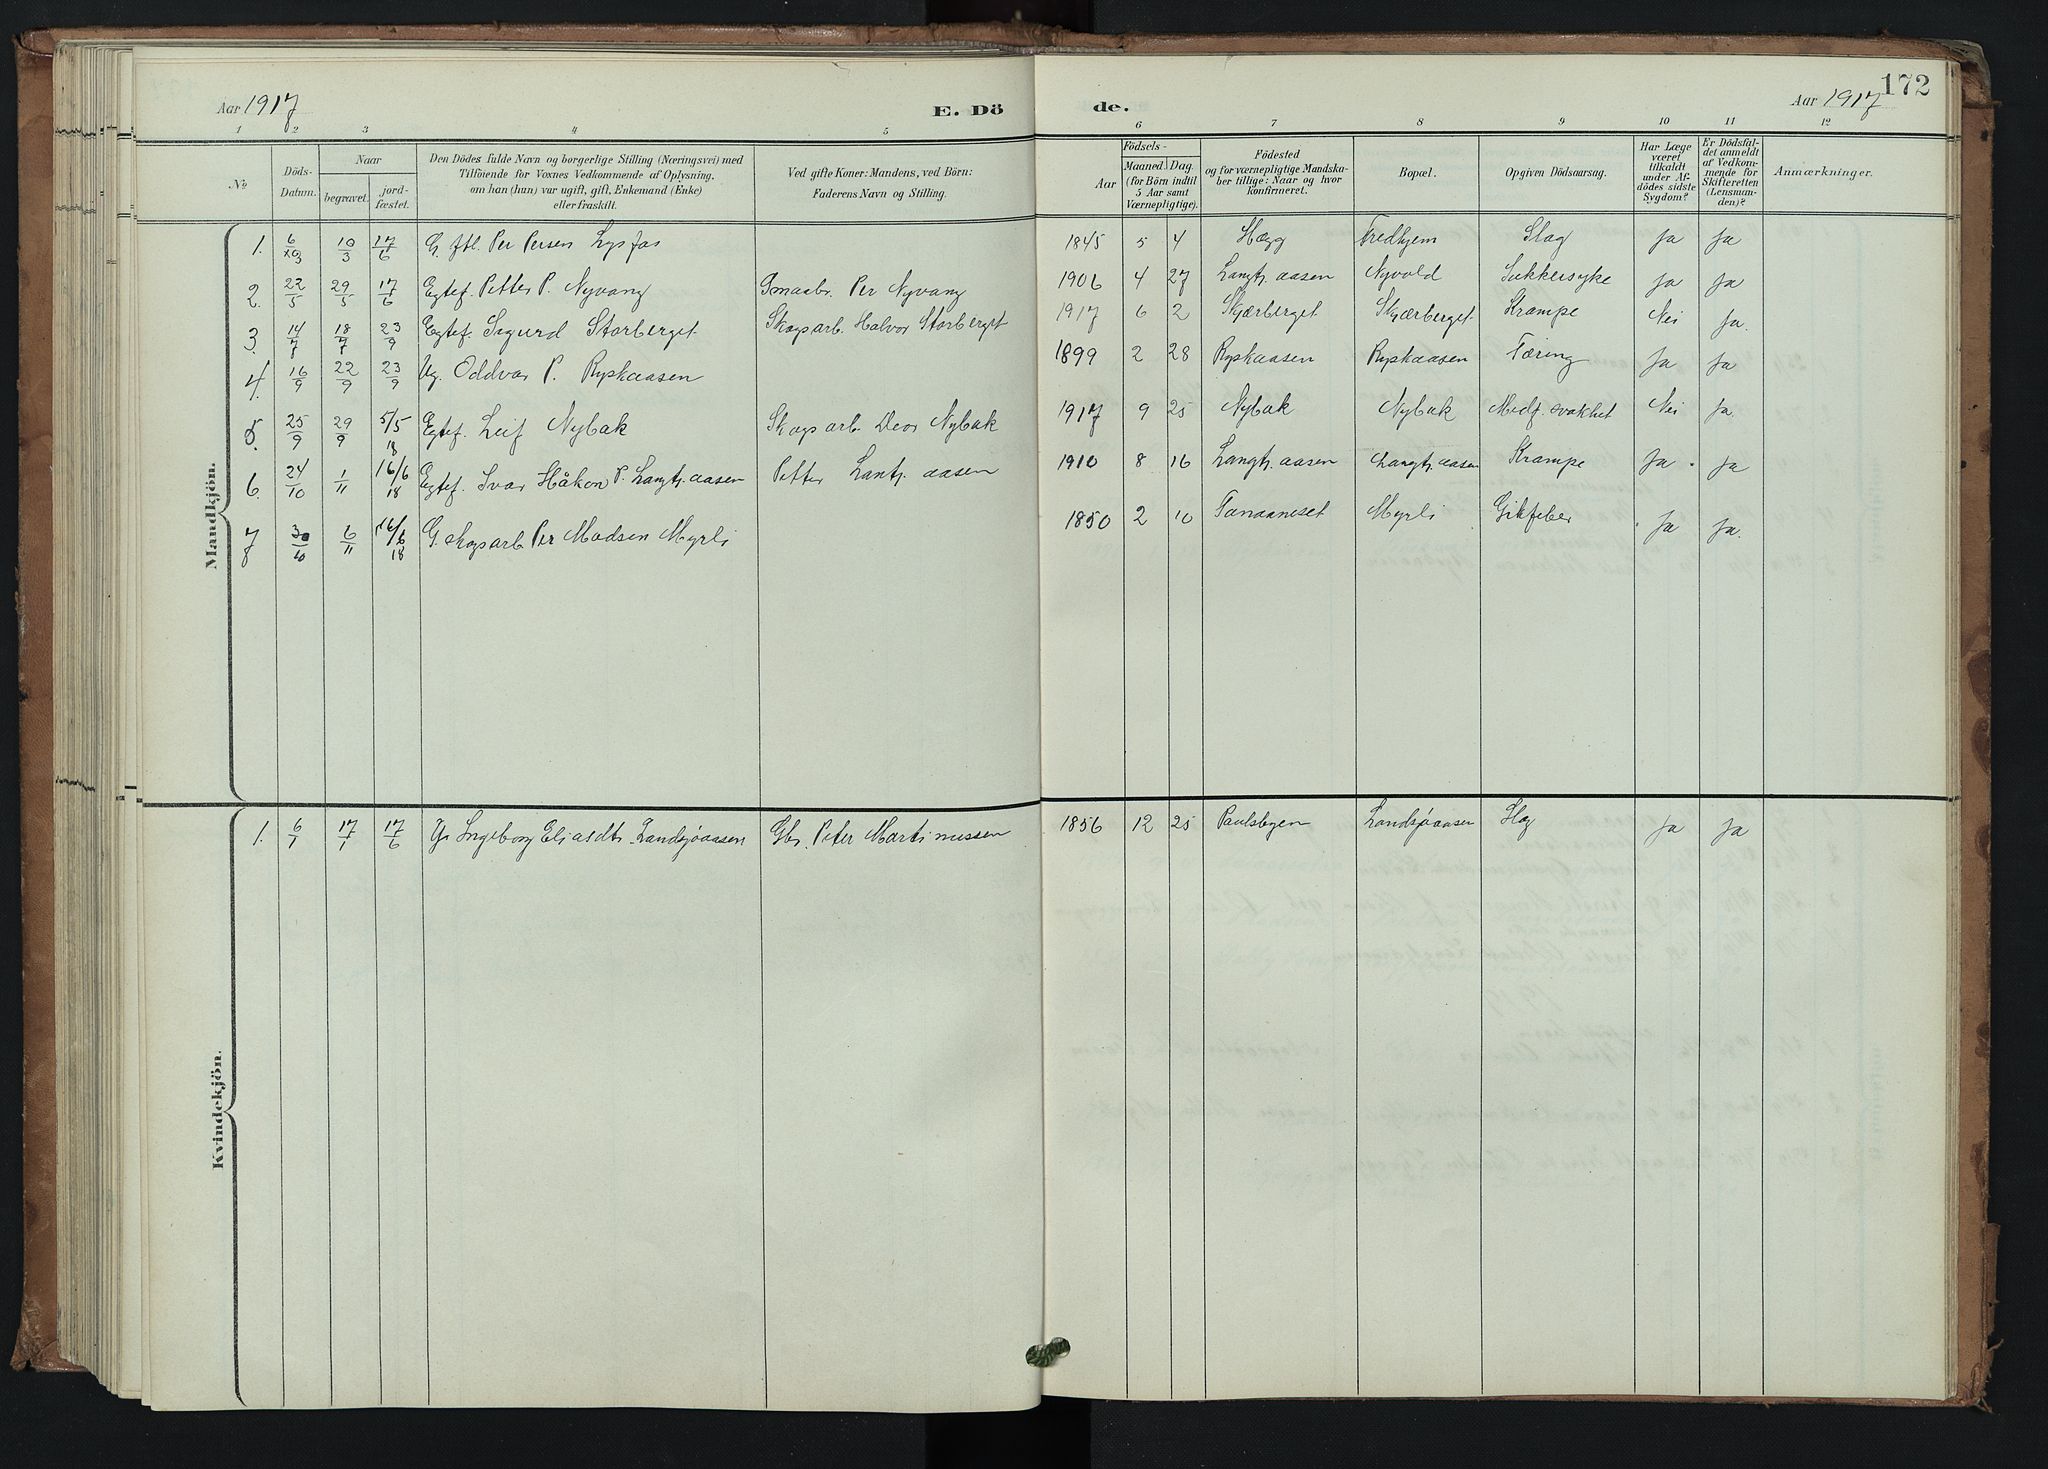 172
Aar 1917
E. Dö
de.
Aar 1917
1 2 3 4 5
6 7 8 9 10 11 12
№
Döds-Datum.
Naar
begravet.
jord-fæstet.
Den Dödes fulde Navn og borgerlige Stilling (Næringsvei) med
Tilföiende for Voxnes Vedkommende af Oplysning,
om han (hun) var ugift, gift, Enkemand (Enke)
eller fraskilt.
Ved gifte Koner: Mandens, ved Börn:
Faderens Navn og Stilling.
Födsels-
Aar
Maaned. Dag.
(for Börn indtil
5 Aar samt
Værnepligtige).
Födested
og for værnepligtige Mandska-
ber tillige: Naar og hvor
konfirmeret.
Bopæl.
Opgiven Dödsaarsag.
Har Læge
været
tilkaldt
under Af-
dödes sidste
Sygdom?
Er Dödsfal-
det anmeldt
af Vedkom-
mende for
Skifteretten
(Lensman-
den)?
Anmærkninger.
Mandkjön.
1. 6/3 10/3 17/6 G. Per Persen Lysfos 1845 5 4 Hægg Fredhjem Slag Ja Ja
2. 22/5 29/5 17/6 Egtef. Petter P. Nyvang Gmaabr. Per Nyvang 1906 4 27 Langtj. aasen Nyvold Sukkersyke Ja Ja
3. 14/7 18/7 23/9 Egtef. Sigurd Storberget Skogsarb. Halvor Storberget 1917 6 2 Skjærberget Skjærberget Krampe Nei Ja.
4. 16/9 22/9 23/9 Ug. Oddvar P. Rypkaasen 1899 2 28 Rypkaasen Rypkaasen Tæring Ja Ja
5. 25/9 29/9 5/5 18 Egtef. Leif Nybak Skogsarb. Nybak 1917 9 25 Nybak Nybak Medf. svakhet Nei Ja.
6. 24/10 1/11 16/6 18 Egtef. Ivar Håkon P. Langtj. aasen Petter Lantj. aasen 1910 8 16 Langtj. aasen Langtj. aasen Krampe Ja. Ja
7 30/10 6/11 16/6 18 G. skogsarb Per Madsen Myrli 1850 2 10 Myrli Giktfeber Ja Ja.
Kvindekjön.
1. 6/1 17/1 17/6 Ingeborg Eliasdt. Landsjøaasen Gbr. Peter Martinussen 1856 12 25 Paulsbyen Landsjøaasen Slag Ja Ja